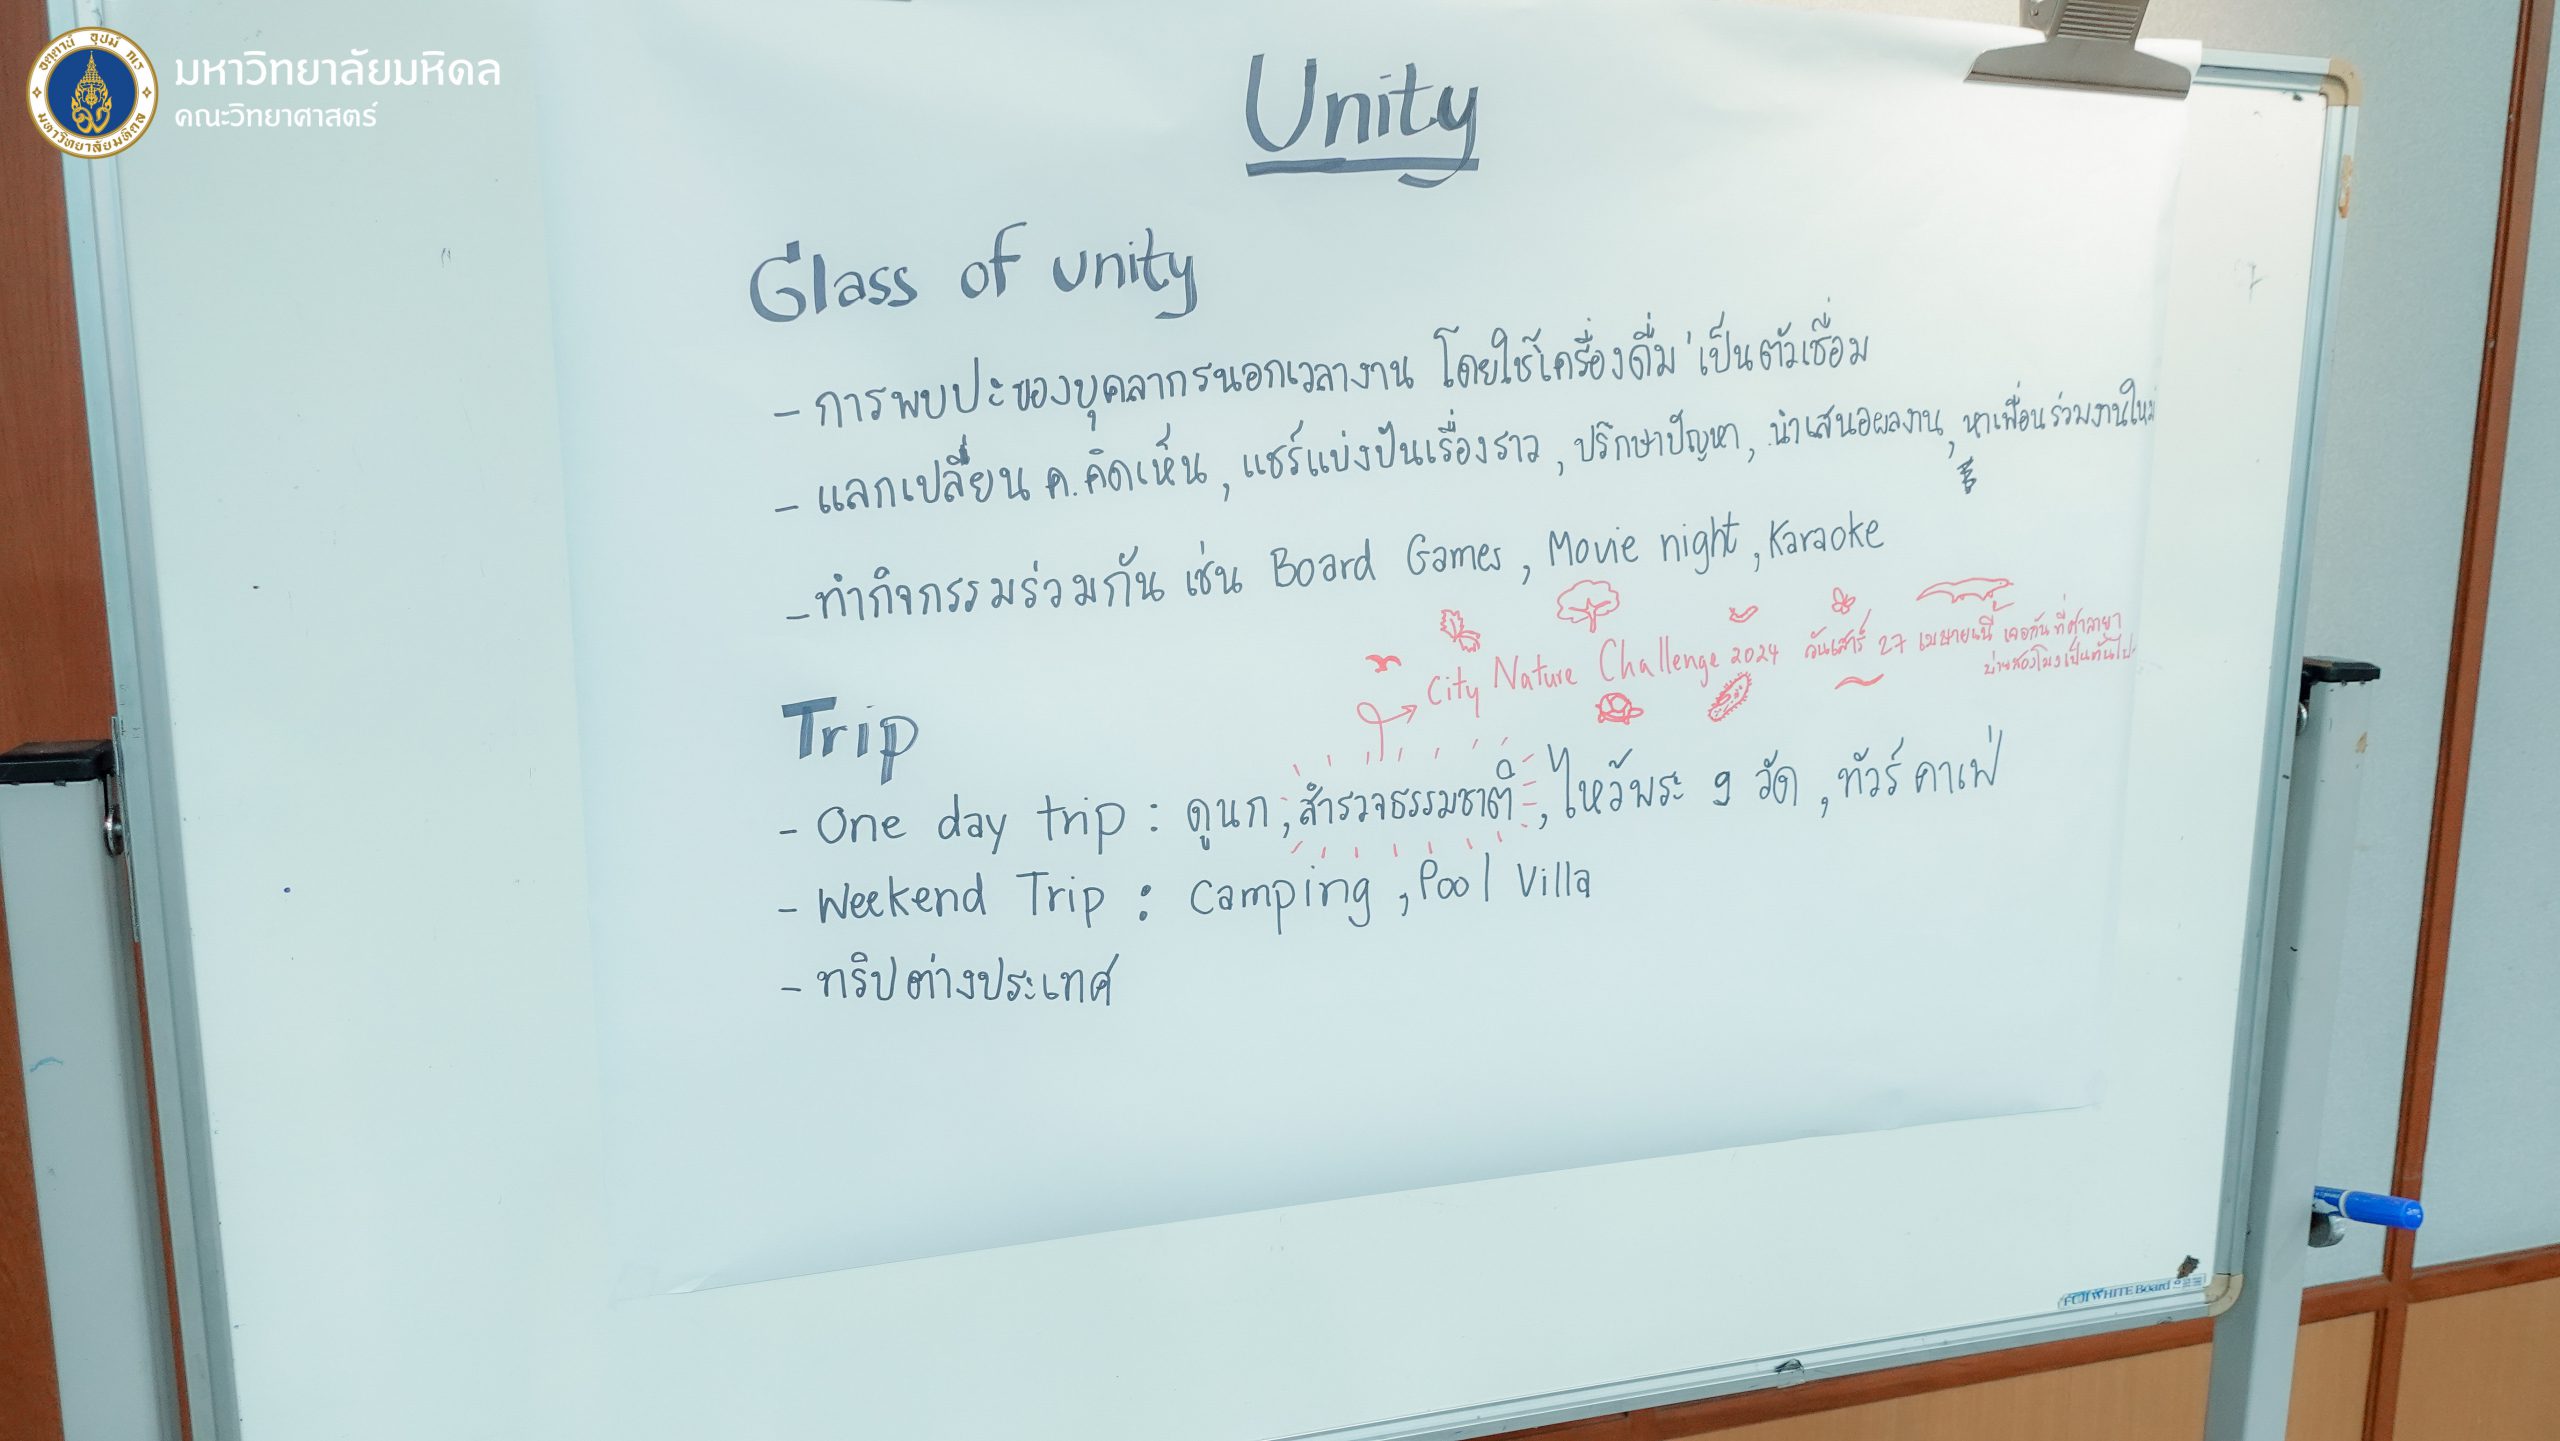 อตฺตานํ อุปมํ กเร
มหาวิทยาลัยมหิดล
มหาวิทยาลัยมหิดล
คณะวิทยาศาสตร์
Unity
Glass of unity
- การพบปะของบุคลากรนอกเวลางาน โดยใช้เครื่องดื่ม เป็นตัวเชื่อม
- แลกเปลี่ยน ค.คิดเห็น, แชร์แบ่งปันเรื่องราว, ปรึกษาปัญหา, นำเสนอผลงาน, หาเพื่อนร่วมงานใหม่
- ทำกิจกรรมร่วมกัน เช่น Board Games, Movie night, Karaoke
City Nature Challenge 2024 วันเสาร์ 27 เมษายนนี้ เจอกันที่ศาลายา
บ่ายสองโมงเป็นต้นไป
Trip
- One day trip : ดูนก, สำรวจธรรมชาติ, ไหว้พระ 9 วัด, ทัวร์คาเฟ่
- Weekend Trip : Camping, Pool Villa
- ทริปต่างประเทศ
FUJI WHITE Board